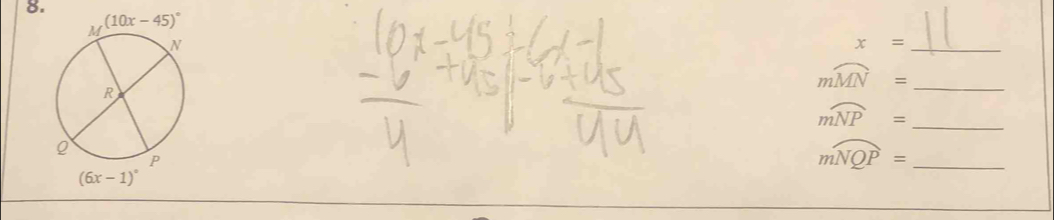 8.
(10x – 45)°
M
N
R
Q
P
(6x – 1)°
10x - 45 = 6x - 1
-6 +45 -6 +45
4 44
x = 11
mMN = ______
mNP = ______
mNQP = ______